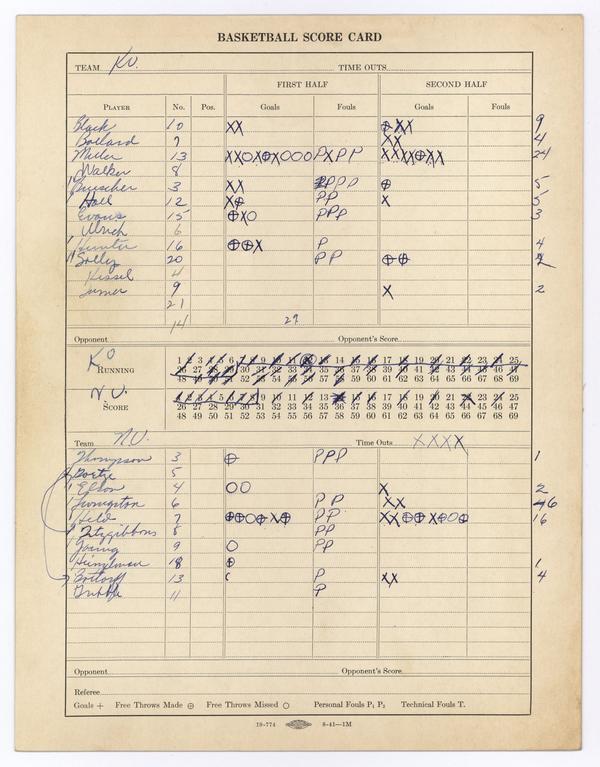 BASKETBALL SCORE CARD
TEAM KU. TIME OUTS
FIRST HALF SECOND HALF
PLAYER No. Pos. Goals Fouls Goals Fouls
Black 10 XX ⊕XX 9
Ballard 7 XX 4
Miller 13 XXOX⊕XOOO PXPP XXXX⊕XX 24
Walker 8
Buescher 3 XX PPP ⊕ 5
Hall 12 X⊕ PP X 5
Evans 15 ⊕XO PPP 3
Ulrich 6
Hunter 16 ⊕⊕X P 4
Sollz 20 PP ⊕⊕
Kissel 4
9 X 2
21
14 29
Opponent Opponent's Score
KU 1 2 3 4 5 6 7 8 9 10 11 12 13 14 15 16 17 18 19 20 21 22 23 24 25
RUNNING 26 27 28 29 30 31 32 33 34 35 36 37 38 39 40 41 42 43 44 45 46 47
48 49 50 51 52 53 54 55 56 57 58 59 60 61 62 63 64 65 66 67 68 69
N.U. 1 2 3 4 5 6 7 8 9 10 11 12 13 14 15 16 17 18 19 20 21 22 23 24 25
SCORE 26 27 28 29 30 31 32 33 34 35 36 37 38 39 40 41 42 43 44 45 46 47
48 49 50 51 52 53 54 55 56 57 58 59 60 61 62 63 64 65 66 67 68 69
Team N.U. Time Outs XXXX
Thompson 3 ⊕ PPP 1
Goetze 5
Elson 4 OO X 2
Livingston 6 PP XX 6
Held 7 ⊕⊕O⊕X⊕ PP XX⊕⊕X⊕O⊕ 16
Fitzgibbons 5 PP
Young 9 O PP
Heinzelman 18 ⊕ 1
Bottorff 13 P XX 4
11 P
Opponent Opponent's Score
Referee
Goals + Free Throws Made ⊕ Free Throws Missed ○ Personal Fouls P₁ P₂ Technical Fouls T.
19-774 8-41—1M